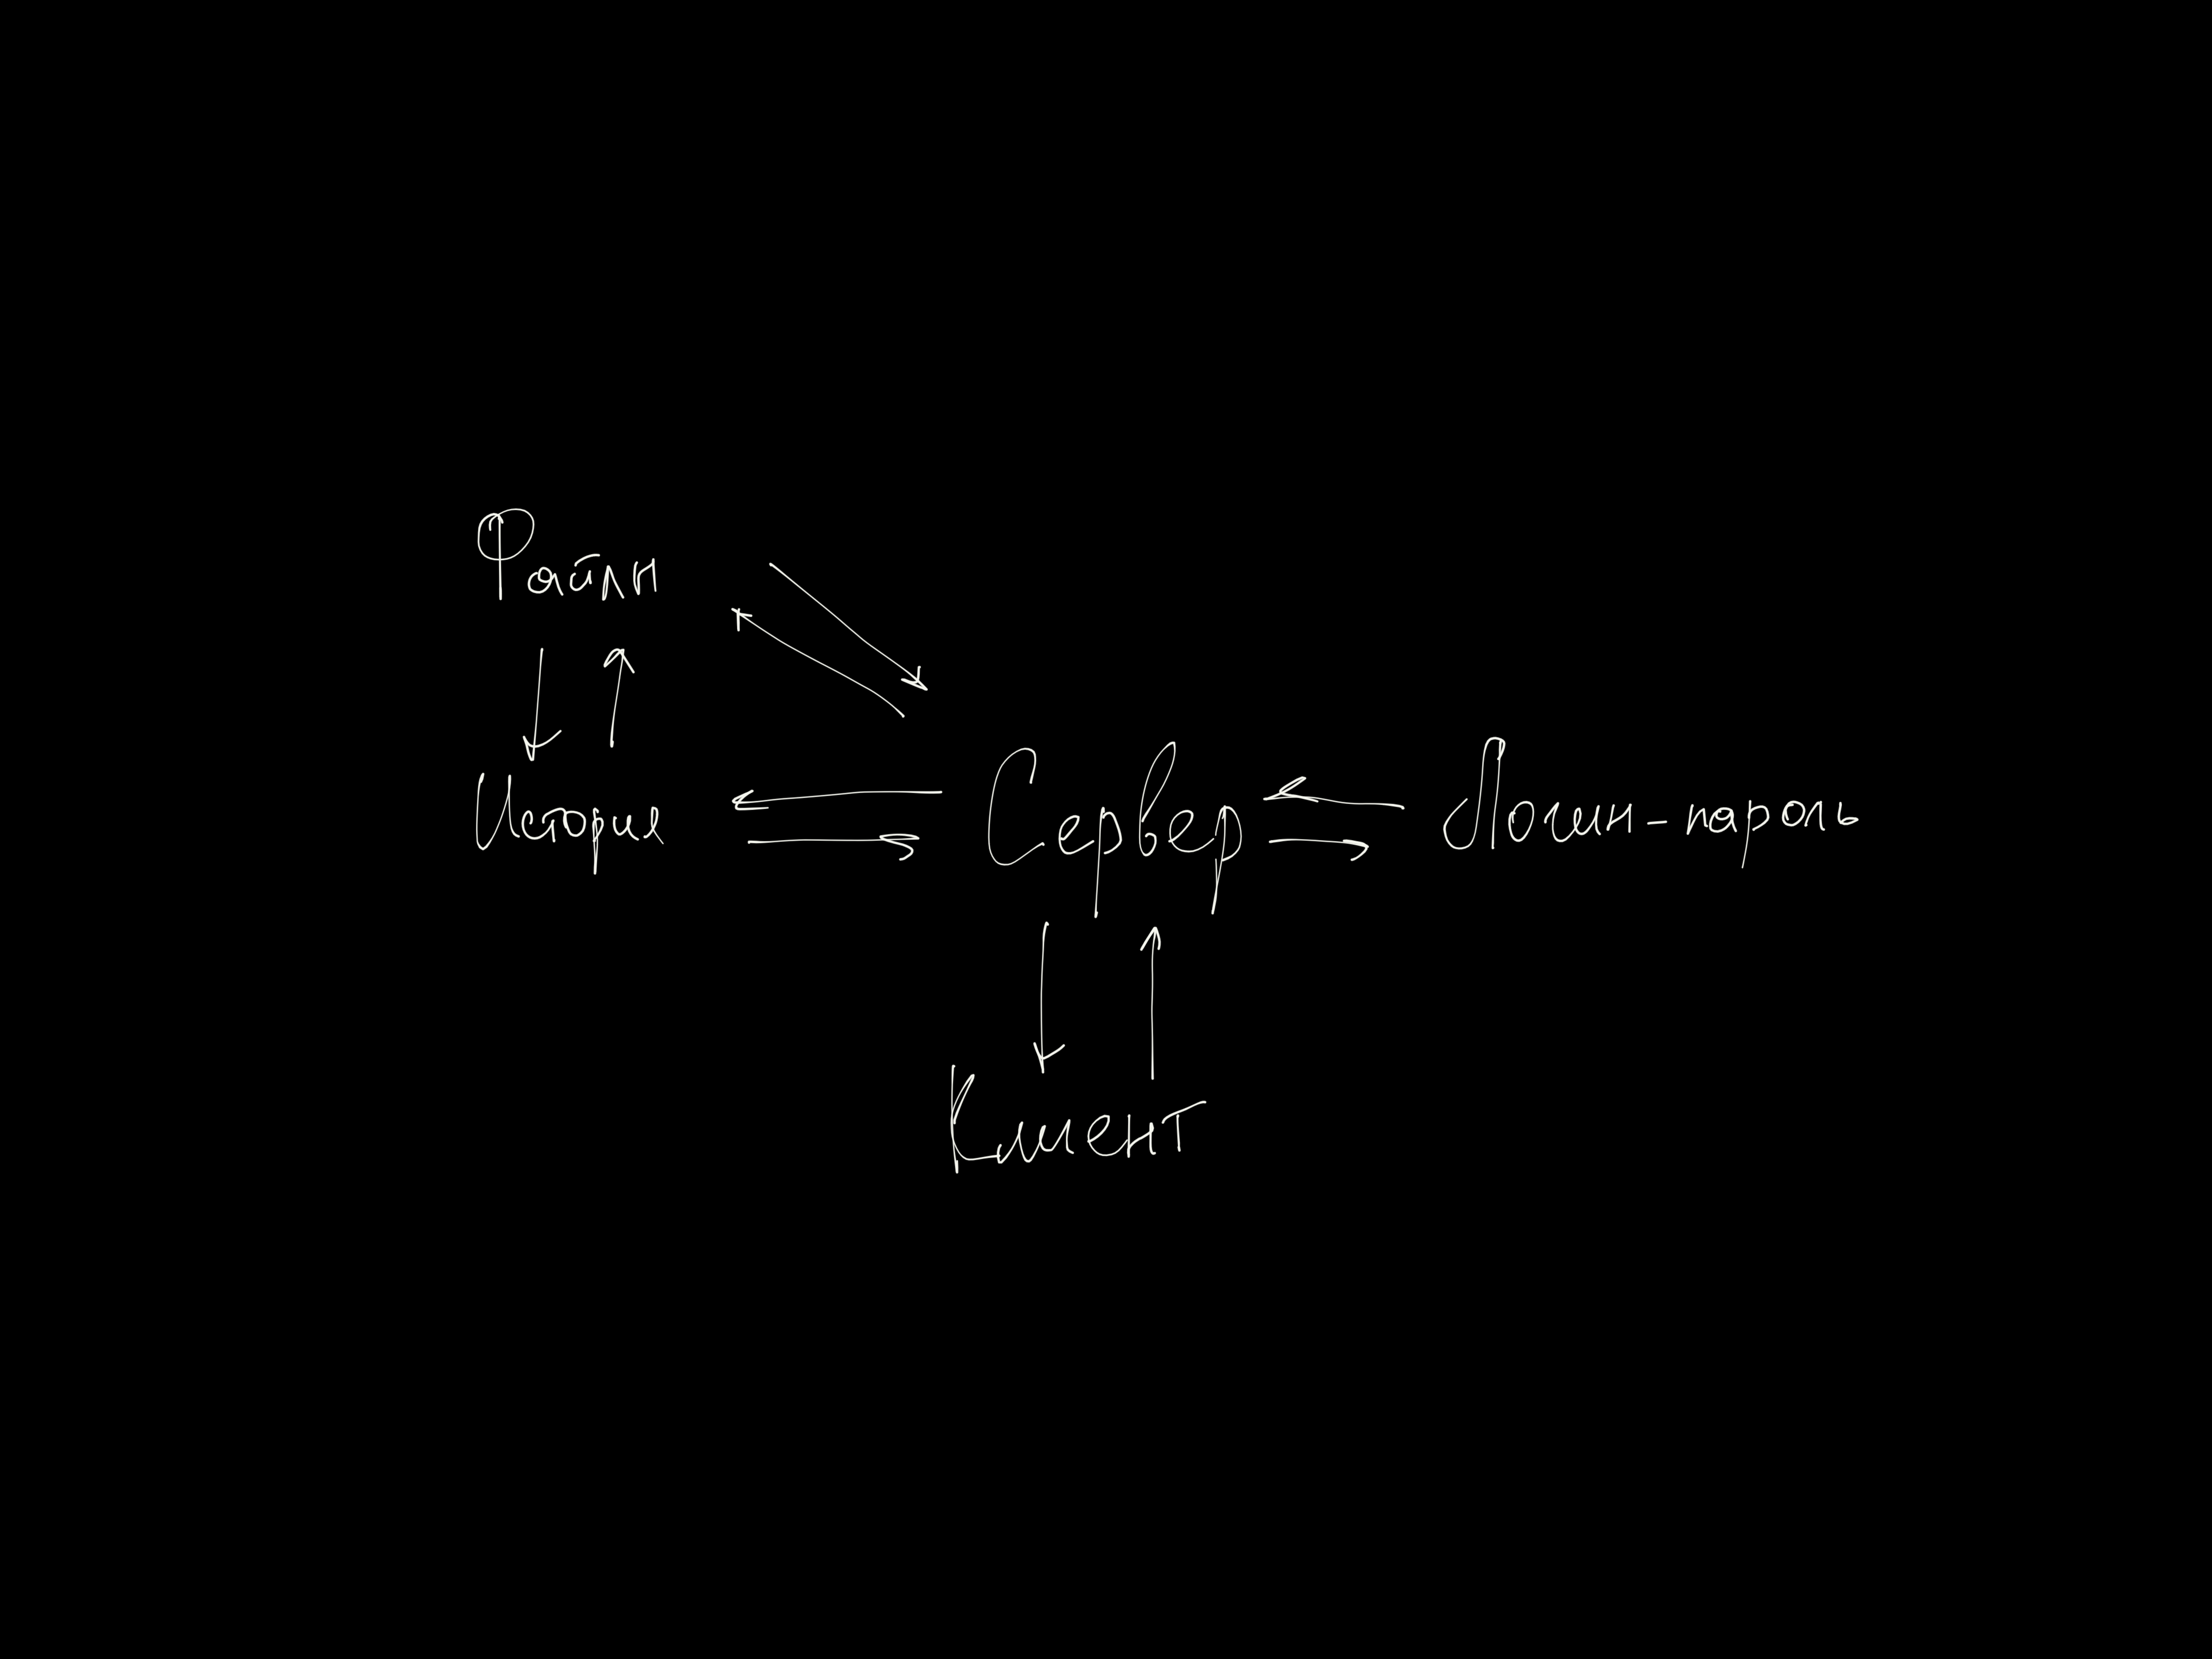 Файлы
История
Сервер
Логин-пароль
Клиент